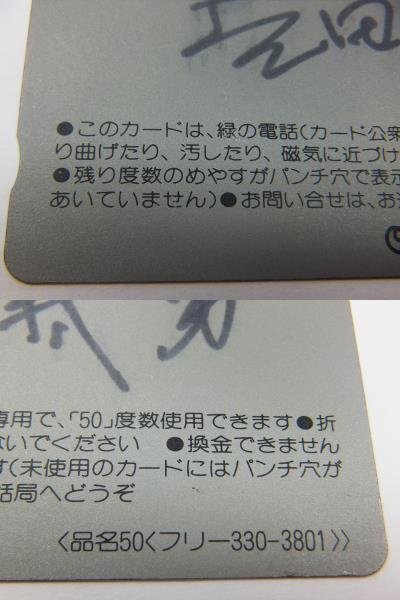 ●このカードは、緑の電話(カード公衆
り曲げたり、汚したり、磁気に近づけ
●残り度数のめやすがパンチ穴で表示
あいていません)●お問い合せは、お
専用で、「50」度数使用できます●折
ないでください ●換金できません
す(未使用のカードにはパンチ穴が
話局へどうぞ
〈品名50〈フリー330-3801〉〉